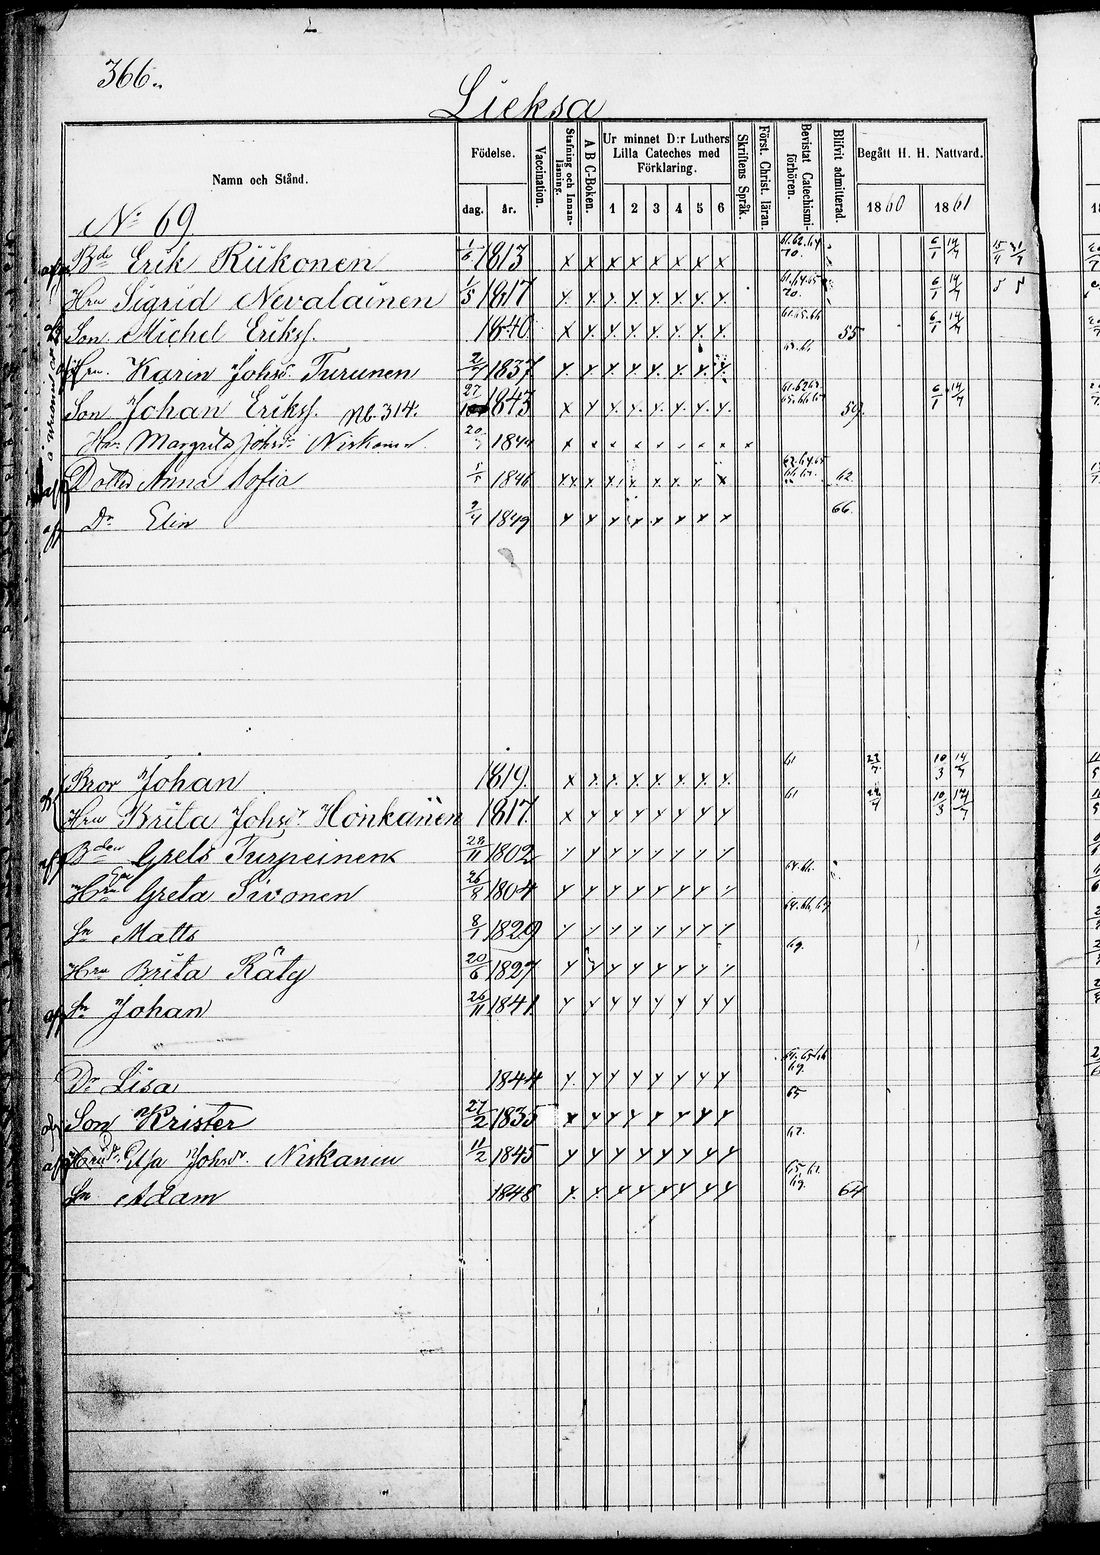 366.
Lieksa
Namn och Stånd.
Födelse.
dag.
år.
Vaccination.
Stafning och Innanläsning.
A B C-Boken.
Ur minnet D:r Luthers
Lilla Cateches med
Förklaring.
1 2 3 4 5 6
Skriftens Språk.
Först. Christ. läran.
Bevistat Catechismiförhören.
Blifvit admitterad.
Begått H. H. Nattvard.
1860 1861
No 69
Bde Erik Riikonen 1/6 1813 x x x x x x x x 61.62.64 70. 6/1 14/7
Hru Sigrid Nevalainen 1/5 1817 x x x x x x x x 70. 6/1 14/7
Son Michel Eriksf. 1840 x x x x x x x x 55 6/1 14/7
Hru. Karin Johsdr Turunen 1837 x x x x x x x x
Son Johan Eriksf. Nb. 314. 27 1843 x x x x x x x x 59 6/1 14/7
Hru Margreta Johsdr Niskanen 20 1844 x x x x x x x x x
Dotter Anna Sofia 1/1 1846 x x x x x x x x 62.64.65 62
Dr Elin 2/4 1849 x x x x x x x x 66.
Bror Johan 1819. x x x x x x x x 61 10/3 14/7
Hru Brita Johsdr Honkanen 1817 x x x x x x x x 61 10/3 14/7
Bden Grels Turpeinen 28/11 1802 x x x x x x x x
Hru Greta Sivonen 26/8 1804 x x x x x x x x 64.66.
Sn Matts 8/1 1829 x x x x x x x x 64.66.69
Hru Brita Räty 20/6 1827 x x x x x x x x 69.
Sn Johan 26/11 1841 x x x x x x x x
Dr Lisa 1844 x x x x x x x x 69.
Son Krister 27/2 1835 x x x x x x x x 65
Hru Johsdr Niskanen 11/2 1845 x x x x x x x x 67.
Sn Adam 1848 x x x x x x x x 69. 64